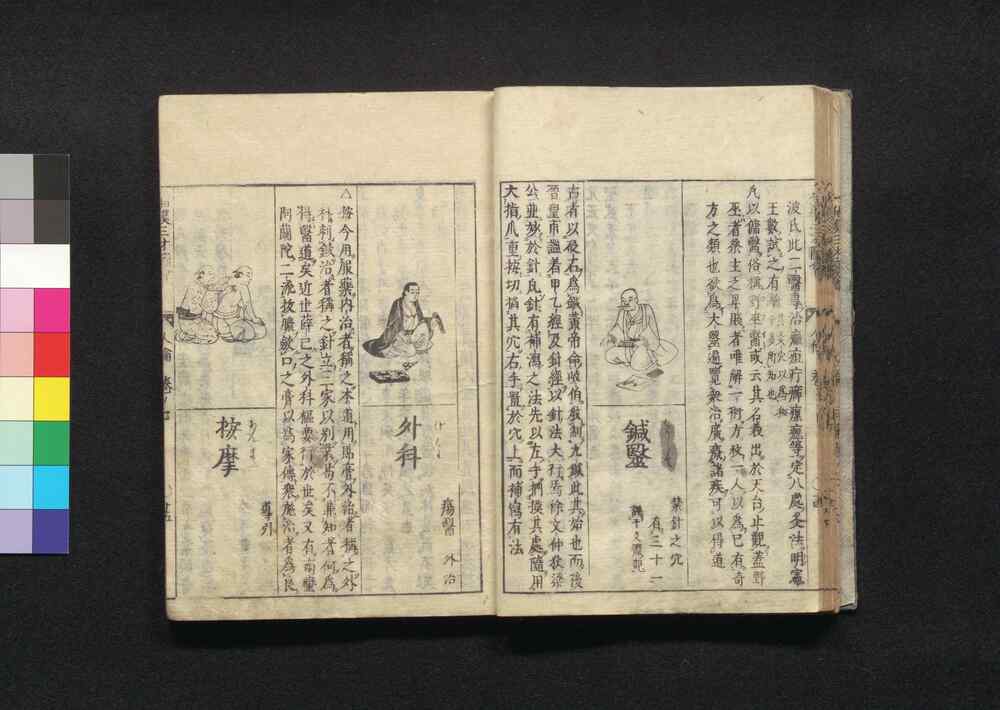 波氏此二醫專治癩疽疔癬瘰癧等定八處灸法明窓
王數試之有
氏以傭醫俗稱行巫醫或云其名義出於天台止觀蓋野
巫者桑主之早賎者唯解一術方救一人以爲已有奇
方之類也欲爲大醫遍覽衆治廣療諸疾可以得道
鍼醫
禁針之穴
有三十一
古者以砭石爲鍼黃帝命岐伯教制九鍼此其始也而後
晉皇甫謐著甲乙經及針經以針法大行焉徐文仲狄梁
公並妙於針凡針有補瀉之法先以左手捫摸其處隨用
大指爪重按切掐其穴右手置於穴上而補瀉有法
外科
瘍醫 外治
△按今用服藥内治者稱之本道用膏外治者稱之外
科刺鍼治者稱之針立三家以別業焉不兼知者何爲
得醫道矣近世薜已之外科樞要行於世矣又有南蠻
阿蘭陀二流抜膿斂口之膏以爲家傳衆施治者爲良
按摩
導外